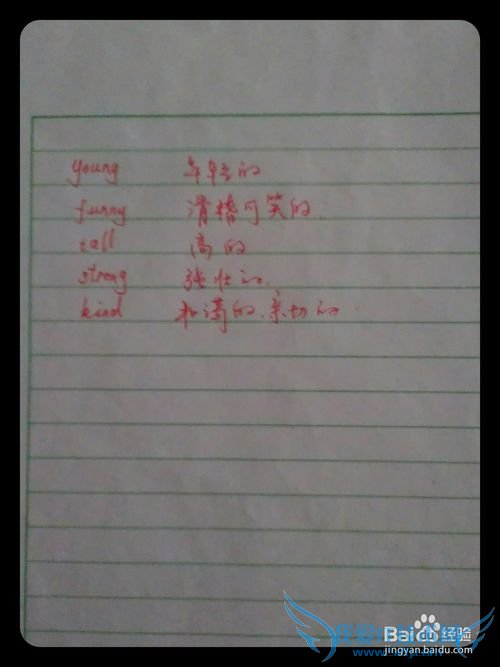 young 年轻的
funny 滑稽可笑的
tall 高的
strong 强壮的.
kind 和蔼的.亲切的.
Baidu 经验
jingyan.baidu.com